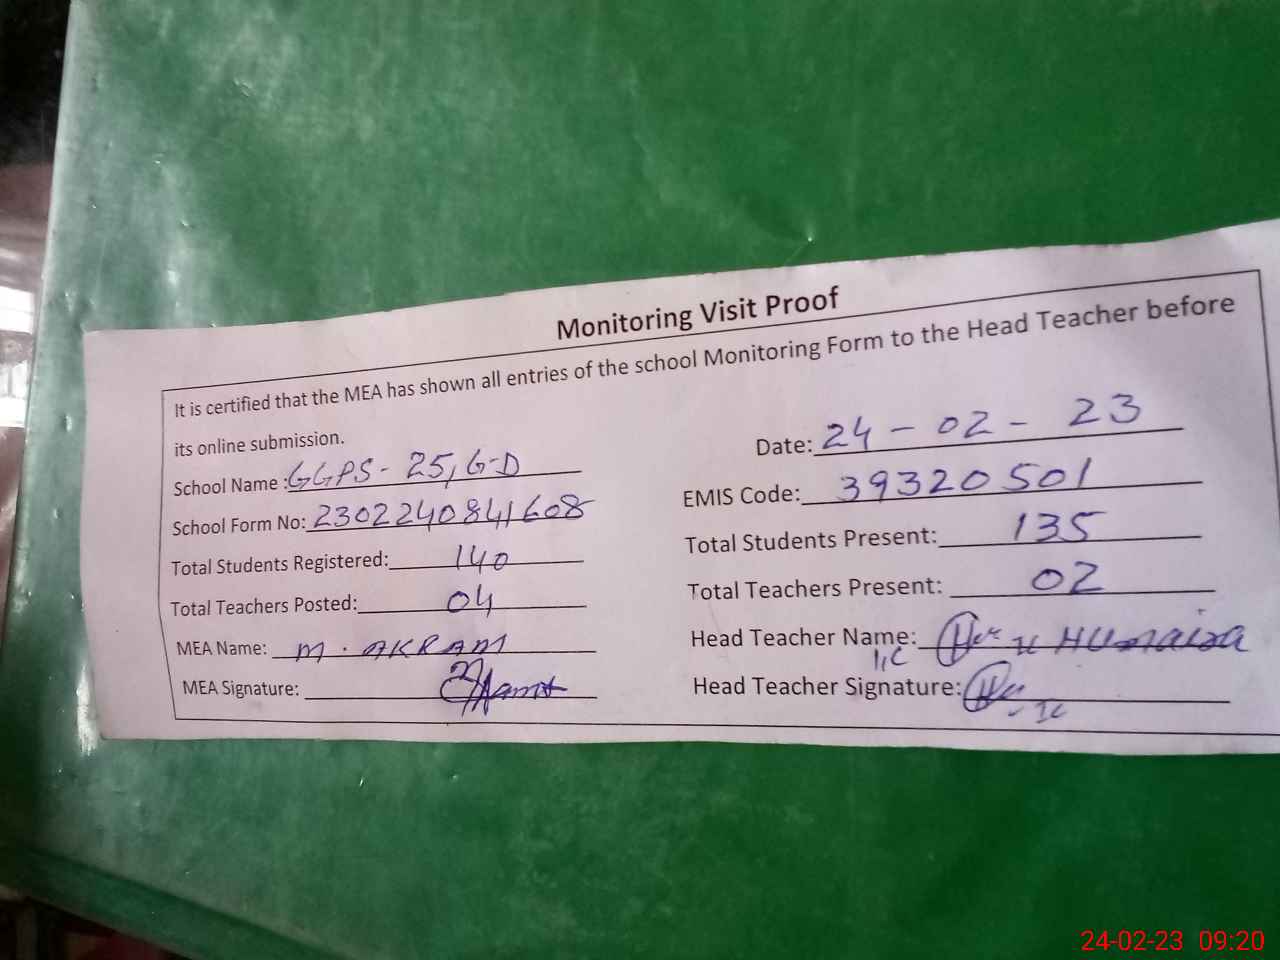 Monitoring Visit Proof
It is certified that the MEA has shown all entries of the school Monitoring Form to the Head Teacher before
its online submission.
Date: 24-02-23
School Name: GGPS-25, G-D
EMIS Code: 39320501
School Form No: 2302240841608
Total Students Present: 135
Total Students Registered: 140
Total Teachers Present: 02
Total Teachers Posted: 04
Head Teacher Name: Humaira
I/C
MEA Name: M. AKRAM
Head Teacher Signature:
MEA Signature:
24-02-23 09:20